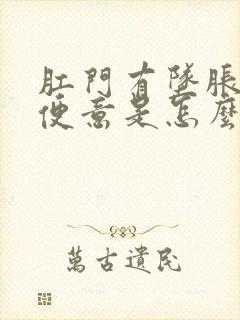 肛門有墜脹
便意是怎麼
萬古遺民